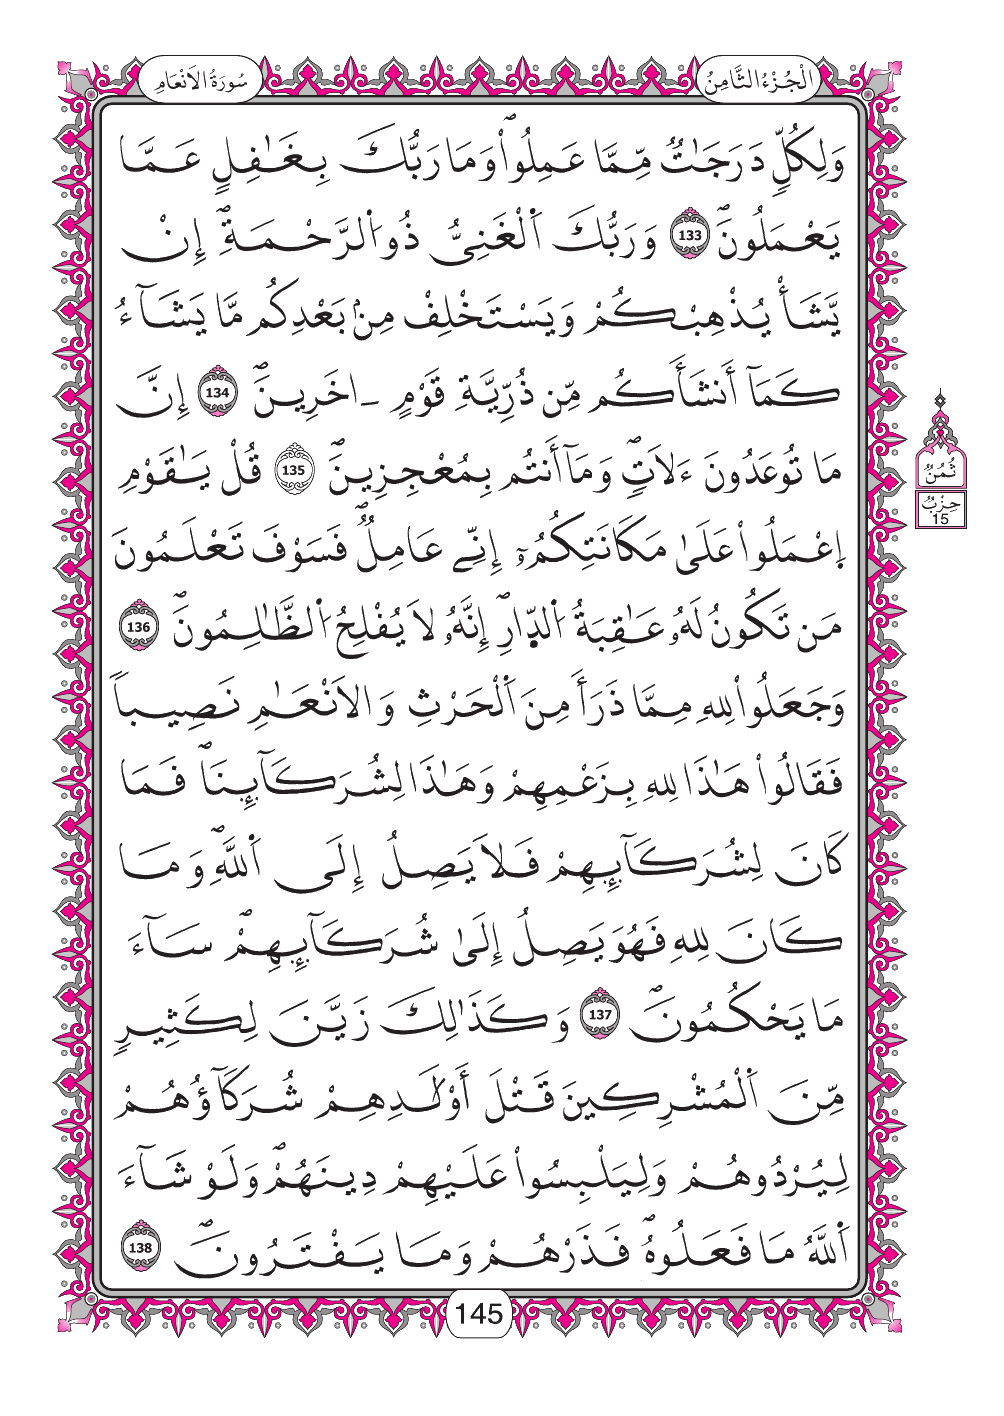 سُورَةُ الَانْعَامِ
الْجُزْءُ الثَّامِنُ
وَلِكُلّٖ دَرَجَٰتٞ مِّمَّا عَمِلُواْۖ وَمَا رَبُّكَ بِغَٰفِلٍ عَمَّا
يَعْمَلُونَۖ 133 وَرَبُّكَ اَ۬لْغَنِيُّ ذُو اُ۬لرَّحْمَةِۖ إِنْ
يَّشَأْ يُذْهِبْكُمْ وَيَسْتَخْلِفْ مِنۢ بَعْدِكُم مَّا يَشَآءُ
كَمَآ أَنشَأَكُم مِّن ذُرِّيَّةِ قَوْمٍ _ اخَرِينَۖ 134 إِنَّ
مَا تُوعَدُونَ ءَلَاتٖۖ وَمَآ أَنتُم بِمُعْجِزِينَۖ 135 قُلْ يَٰقَوْمِ
اِ۪عْمَلُواْ عَلَىٰ مَكَانَتِكُمُۥٓ إِنِّے عَامِلٞۖ فَسَوْفَ تَعْلَمُونَ
مَن تَكُونُ لَهُۥ عَٰقِبَةُ اُ۬لدّ۪ارِۖ إِنَّهُۥ لَا يُفْلِحُ اُ۬لظَّٰلِمُونَۖ 136
وَجَعَلُواْ لِلهِ مِمَّا ذَرَأَ مِنَ اَ۬لْحَرْثِ وَالَانْعَٰمِ نَصِيباٗ
فَقَالُواْ هَٰذَا لِلهِ بِزَعْمِهِمْ وَهَٰذَا لِشُرَكَآئِنَاۖ فَمَا
كَانَ لِشُرَكَآئِهِمْ فَلَا يَصِلُ إِلَى اَ۬للَّهِۖ وَمَا
كَانَ لِلهِ فَهُوَ يَصِلُ إِلَىٰ شُرَكَآئِهِمْۖ سَآءَ
مَا يَحْكُمُونَۖ 137 وَكَذَٰلِكَ زَيَّنَ لِكَثِيرٖ
مِّنَ اَ۬لْمُشْرِكِينَ قَتْلَ أَوْلَٰدِهِمْ شُرَكَآؤُهُمْ
لِيُرْدُوهُمْ وَلِيَلْبِسُواْ عَلَيْهِمْ دِينَهُمْۖ وَلَوْ شَآءَ
اَ۬للَّهُ مَا فَعَلُوهُۖ فَذَرْهُمْ وَمَا يَفْتَرُونَۖ 138
ثُمُنٌ
حِزْبُ
15
145